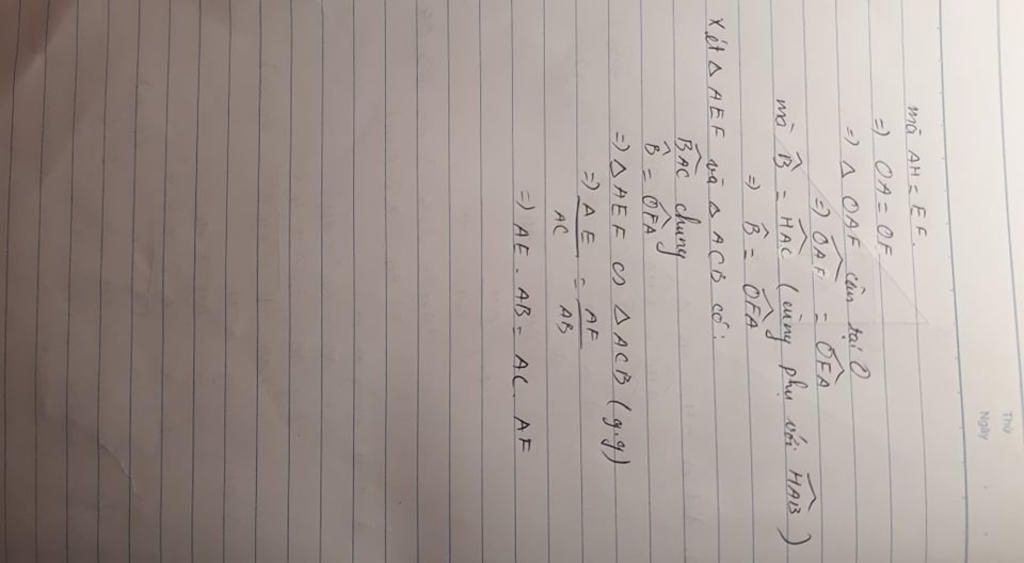 Thứ
Ngày
mà AH = EF.
=) OA = OF
=) Δ OAF cân tại O
=) \widehat{OAF} = \widehat{OFA}
mà \widehat{B} = \widehat{HAC} (cùng phụ với \widehat{HAB})
=) \widehat{B} = \widehat{OFA}
Xét Δ AEF và Δ ACB có:
\widehat{BAC} chung
\widehat{B} = \widehat{OFA}
=) Δ AEF ∽ Δ ACB (g.g)
=) AE/AC = AF/AB
=) AE . AB = AC . AF